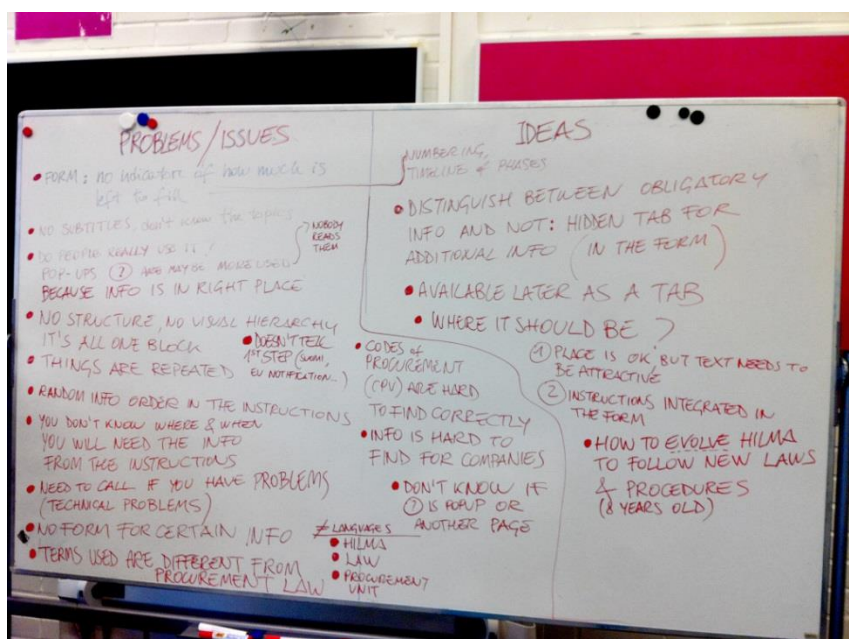 PROBLEMS/ISSUES
• FORM: no indicators of how much is
left to fill
• NO SUBTITLES, don't know the topics
• DO PEOPLE REALLY USE IT!
POP-UPS ? ARE MAYBE MORE USED
BECAUSE INFO IS IN RIGHT PLACE
NOBODY
READS
THEM
• NO STRUCTURE, NO VISUAL HIERARCHY
IT'S ALL ONE BLOCK
• DOESN'T TELL
1ST STEP (SUOMI,
EU NOTIFICATION...)
• THINGS ARE REPEATED
• RANDOM INFO ORDER IN THE INSTRUCTIONS
• YOU DON'T KNOW WHERE & WHEN
YOU WILL NEED THE INFO
FROM THE INSTRUCTIONS
• NEED TO CALL IF YOU HAVE PROBLEMS
(TECHNICAL PROBLEMS)
• NO FORM FOR CERTAIN INFO
• TERMS USED ARE DIFFERENT FROM
PROCUREMENT LAW
≠ LANGUAGES
• HILMA
• LAW
• PROCUREMENT
UNIT
• CODES of
PROCUREMENT
(CPV) ARE HARD
TO FIND CORRECTLY
• INFO IS HARD TO
FIND FOR COMPANIES
• DON'T KNOW IF
? IS POPUP OR
ANOTHER PAGE
IDEAS
NUMBERING,
TIMELINE of PHASES
• DISTINGUISH BETWEEN OBLIGATORY
INFO AND NOT: HIDDEN TAB FOR
ADDITIONAL INFO (IN THE FORM)
• AVAILABLE LATER AS A TAB
• WHERE IT SHOULD BE?
1 PLACE IS OK, BUT TEXT NEEDS TO
BE ATTRACTIVE
2 INSTRUCTIONS INTEGRATED IN
THE FORM
• HOW TO EVOLVE HILMA
TO FOLLOW NEW LAWS
& PROCEDURES
(8 YEARS OLD)